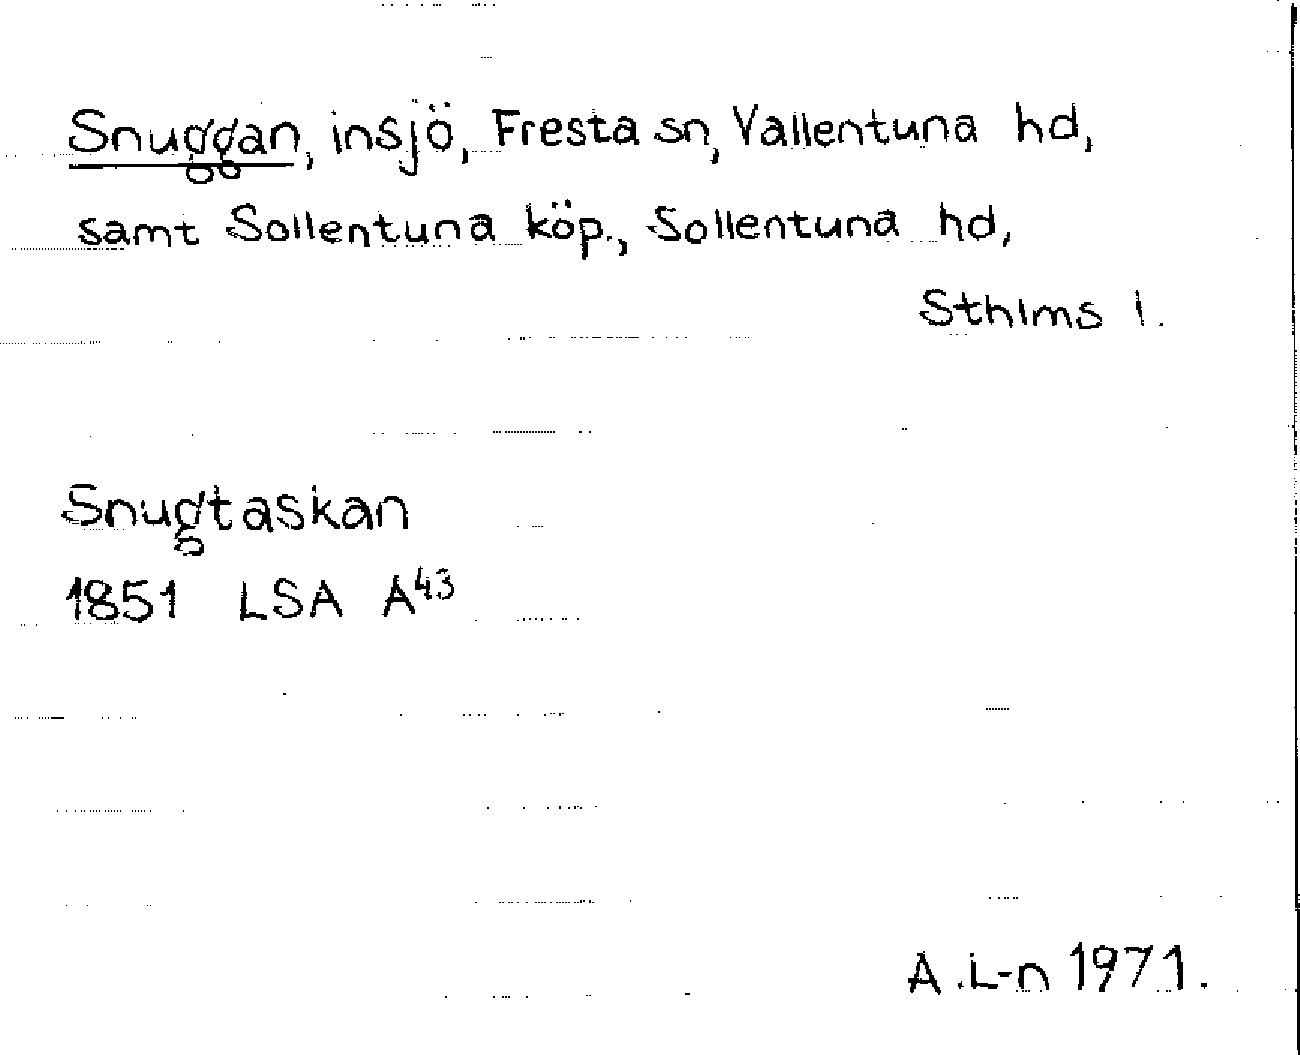 Snuggan, insjö, Fresta sn, Vallentuna hd,
samt Sollentuna köp., Sollentuna hd,
Sthlms l.
Snugtaskan
1851 LSA A43
A.L-n 1971.